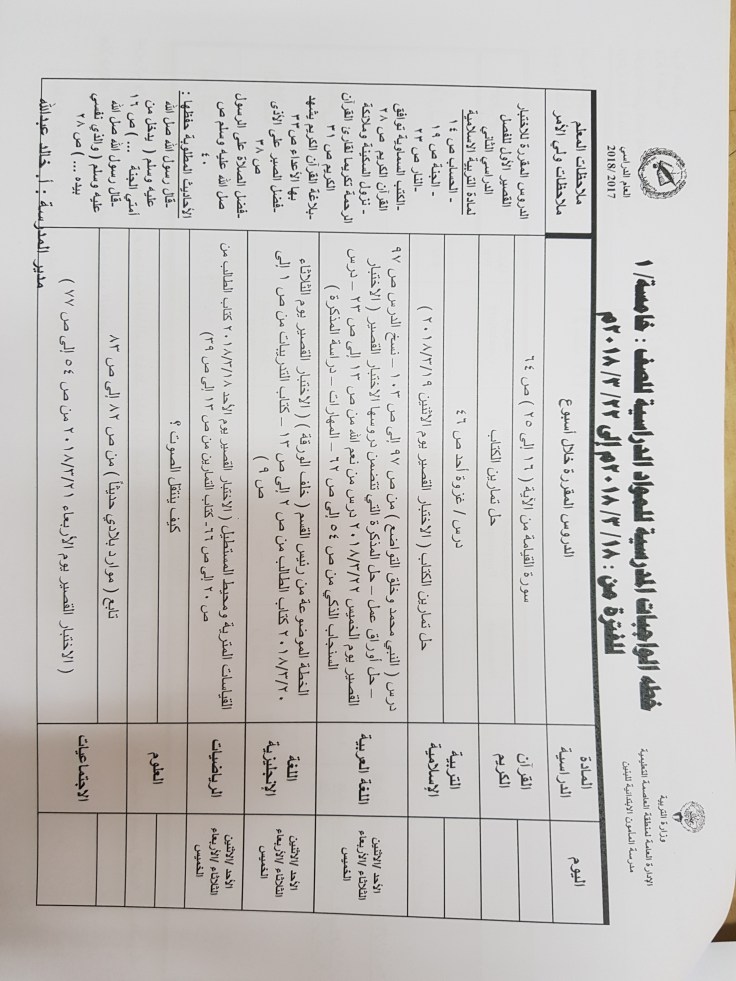 وزارة التربية
الإدارة العامة لمنطقة العاصمة التعليمية
مدرسة المأمون الابتدائية للبنين
العام الدراسي
2018/2017
خطه الواجبات المدرسية للمواد الدراسية للصف : خامسة/ ١
للفترة من : ٢٠١٨/٣/١٨م إلى ٢٠١٨/٣/٢٢م
اليوم
المادة الدراسية
الدروس المقررة خلال أسبوع
ملاحظات المعلم
ملاحظات ولي الأمر
القرآن الكريم
سورة القيامة من الآية ( ١٦ إلى ٢٥ ) ص ٦٤
حل تمارين الكتاب
التربية الإسلامية
درس / غزوة أحد ص ٤٦
حل تمارين الكتاب ( الاختبار القصير يوم الاثنين ٢٠١٨/٣/١٩ )
الأحد /الاثنين
الثلاثاء /الأربعاء
الخميس
اللغة العربية
درس ( النبي محمد وخلق التواضع ) من ص ٩٧ إلى ص ١٠٣ – نسخ الدرس ص ٩٧
– حل أوراق عمل – حل المذكرة التي تتضمن دروسها الاختبار القصير ( الاختبار
القصير يوم الخميس ٢٠١٨/٣/٢٢ درس من نعم الله من ص ١٣ إلى ص ٢٣ – درس
السنجاب الذكي من ص ٥٤ إلى ص ٦٢ – المهارات – دراسة المذكرة )
الأحد /الاثنين
الثلاثاء /الأربعاء
الخميس
اللغة الإنجليزية
الخطة الموضوعة من رئيس القسم ( خلف الورقة ) ( الاختبار القصير يوم الثلاثاء
٢٠١٨/٣/٢٠ كتاب الطالب من ص ٢ إلى ص ١٣ – كتاب التدريبات من ص ١ إلى
ص ٩ )
الأحد /الاثنين
الثلاثاء /الأربعاء
الخميس
الرياضيات
القياسات المترية ومحيط المستطيل ( الاختبار القصير يوم الأحد ٢٠١٨/٣/١٨ كتاب الطالب من
ص ٢٠ إلى ص ٦٦- كتاب التمارين من ص ١٣ إلى ص ٣٩)
العلوم
كيف ينتقل الصوت ؟
الاجتماعيات
تابع ( موارد بلادي حديثاً ) من ص ٨٢ إلى ص ٨٣
( الاختبار القصير يوم الأربعاء ٢٠١٨/٣/٢١ من ص ٥٤ إلى ص ٧٧ )
الدروس المقررة للاختبار
القصير الأول للفصل
الدراسي الثاني
لمادة التربية الاسلامية
- الحساب ص ١٤
- الجنة ص ١٩
-النار ص ٢٣
-الكتب السماوية توافق
القرآن الكريم ص ٢٨
- نزول السكينة وملائكة
الرحمة تكريما لقارئ القرآن
الكريم ص ٣١
-بلاغة القرآن الكريم يشهد
بها الأعداء ص٣٣
-فضل الصبر على الأذى
ص ٣٨
-فضل الصلاة على الرسول
صل الله عليه وسلم ص
٤٠
الأحاديث المطلوبة حفظها :
-قال رسول الله صل الله
عليه وسلم ( يدخل من
أمتي الجنة ... ) ص ١٦
-قال رسول الله صل الله
عليه وسلم ( والذي نفسي
بيده ... ) ص ٢٨
مدير المدرسة : أ. خالد عبدالله